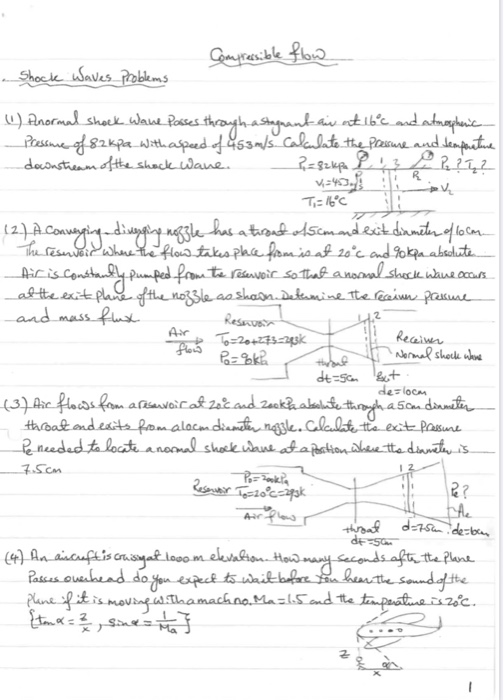 Compressible flow
Shock Waves Problems
(1) A normal shock wave Passes through a stagnant air at 16°c and atmospheric
Pressure of 82kpa with a speed of 453m/s. Calculate the Pressure and temperature
downstream of the shock wave.
P₁=82kpa 1 2 P₂? T₂?
V₁=453m/s V₂
T₁=16°C
(2) A Converging-diverging nozzle has a throat of 5cm and exit diameter of 10cm
The reservoir where the flow takes place from is at 20°c and 90kpa absolute
Air is constantly pumped from the reservoir so that a normal shock wave occurs
at the exit plane of the nozzle as shown. Determine the receiver pressure
and mass flux
Reservoir 1 2
Air T₀=20+273=293k Receiver
flow P₀=90kPa Normal shock wave
throat Exit
dt=5cm de=10cm
(3) Air flows from a reservoir at 20°c and 200kPa absolute through a 5cm diameter
throat and exits from a 10cm diameter nozzle. Calculate the exit Pressure
Pe needed to locate a normal shock wave at a position where the diameter is
7.5cm
P₀=200kPa 1 2
Reservoir T₀=20°C=293k Pe?
Air flow Ae
throat d=7.5cm de=10cm
dt=5cm
(4) An aircraft is crusing at 1000 m elevation. How many seconds after the Plane
Passes overhead do you expect to wait before you hear the sound of the
Plane if it is moving with a mach no. Ma=1.5 and the temperature is 20°c.
{tan α = z/x , sin α = 1/Ma}
z
x
1